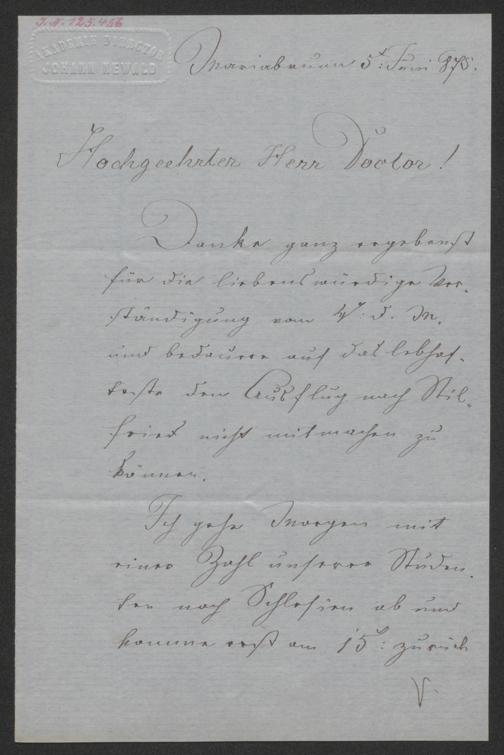 J.N. 125.456
AKADEMIE DIRECTOR
JOHANN NEWALD
Mariabrunn 5t: Juni 875.
Hochgeehrter Herr Doctor!
Danke ganz ergebenst
für die liebenswürdige Ver-
ständigung vom 4t. d. M.
und bedauere auf das lebhaf-
teste den Ausflug nach Stil-
fried nicht mitmachen zu
können.
Ich gehe Morgen mit
einer Zahl unserer Studen-
ten nach Schlesien ab und
komme erst am 15t: zurück